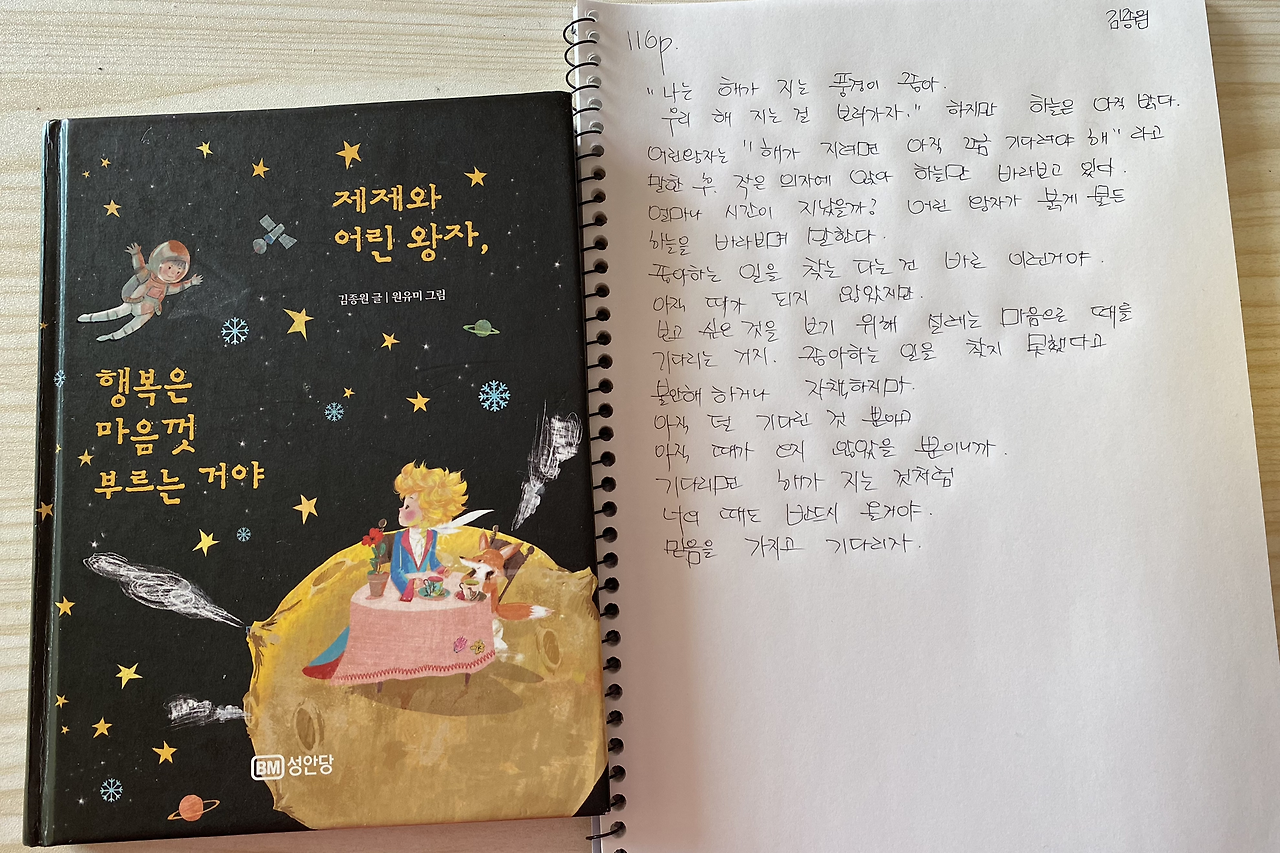 제제와
어린 왕자,
김종원 글 | 원유미 그림
행복은
마음껏
부르는 거야
BM 성안당
김종원
116p.
"나는 해가 지는 풍경이 좋아.
우리 해 지는 걸 보러가자." 하지만 하늘은 아직 밝다.
어린왕자는 "해가 지려면 아직 조금 기다려야 해" 라고
말한 후, 작은 의자에 앉아 하늘만 바라보고 있다.
얼마나 시간이 지났을까? 어린 왕자가 붉게 물든
하늘을 바라보며 말한다.
좋아하는 일을 찾는 다는건 바로 이런거야.
아직 때가 되지 않았지만.
보고 싶은 것을 보기 위해 설레는 마음으로 때를
기다리는 거지. 좋아하는 일을 찾지 못했다고
불안해 하거나 자책하지마.
아직 덜 기다린 것 뿐이고
아직 때가 오지 않았을 뿐이니까.
기다리면 해가 지는 것처럼
너의 때도 반드시 올거야.
믿음을 가지고 기다리자.